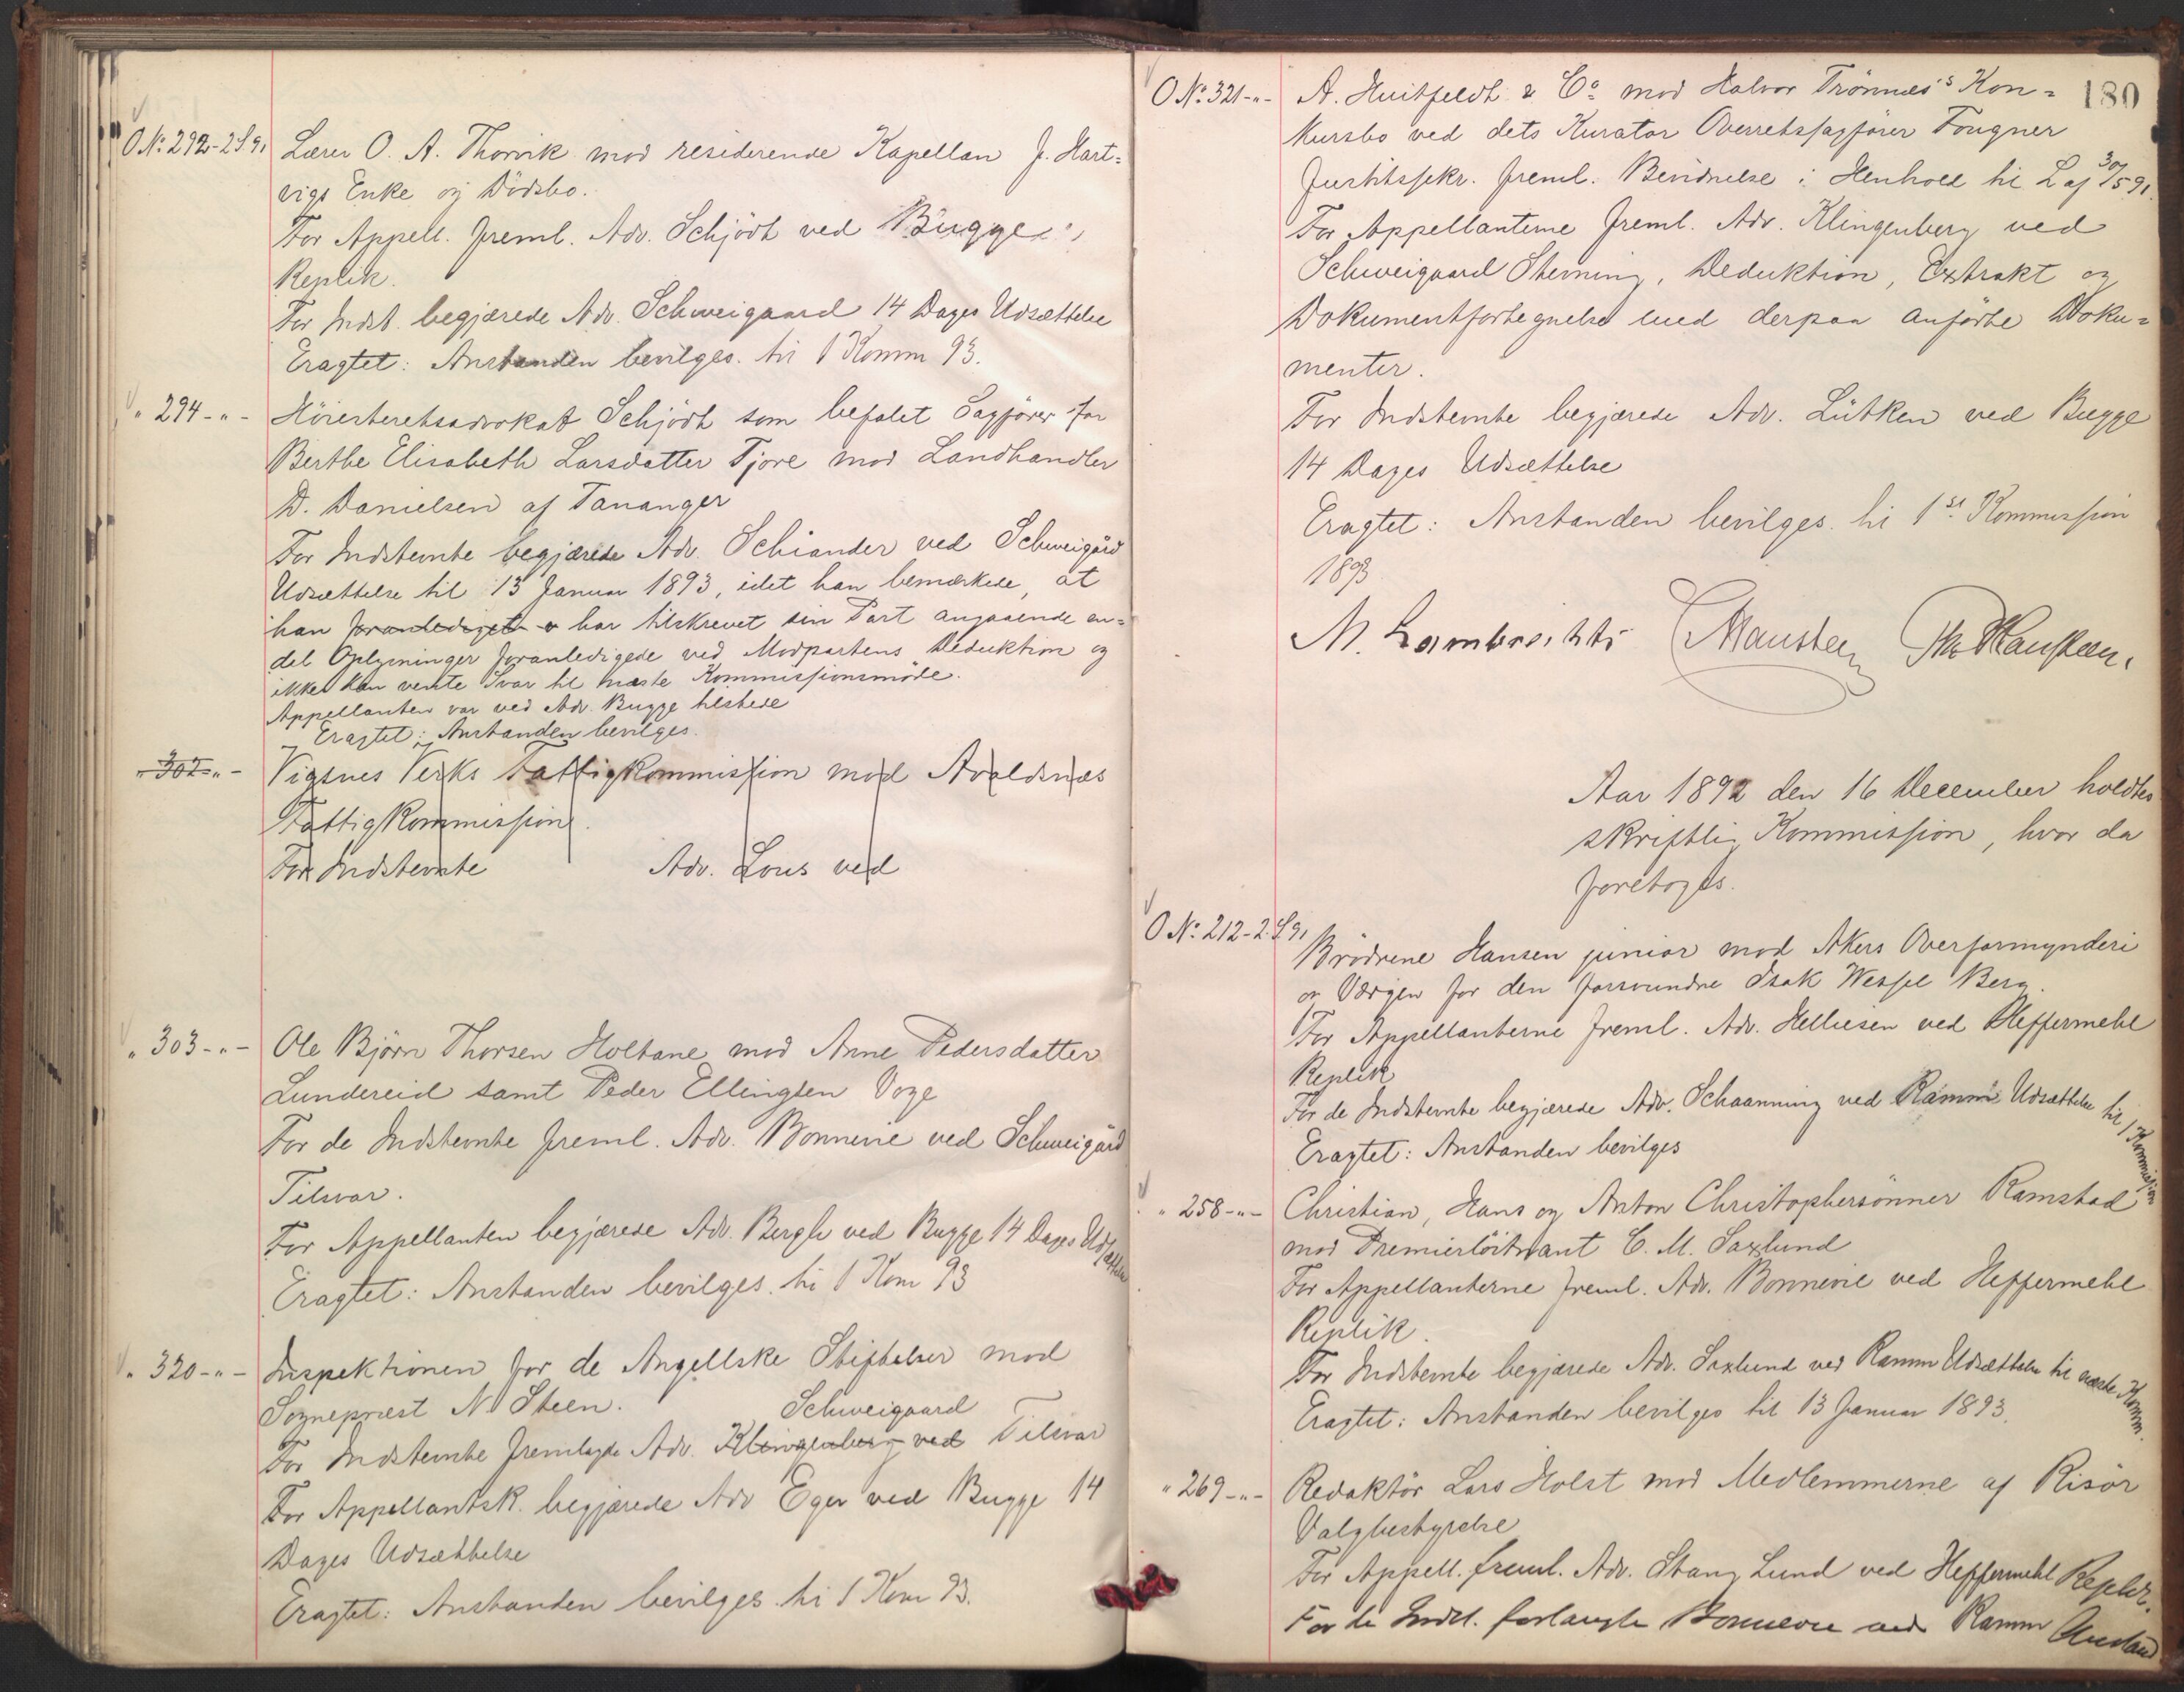 O. No. 292-2S91 Lærer O. A. Thorvik mod residerende Kapellan J. Hart-
vigs Enke og Dödsbo.
For Appell. freml. Adv. Schjödt ved Bugge
Replik.
For Indst. begjærede Adv. Schweigaard 14 Dages Udsættelse
Eragtet: Anstanden bevilges til 1 Komm 93.
" 294-"- Höiesteretsadvokat Schjödt som befalet Sagförer for
Berthe Elisabeth Larsdatter Tjore mod Landhandler
D. Danielsen af Tananger
For Indstevnte begjærede Adv. Schiander ved Schweigård
Udsættelse til 13 Januar 1893, idet han bemærkede, at
han foranlediget har tilskrevet sin Part angaaende en-
del Oplysninger foranledigede ved Modpartens Deduktion og
ikke kan vente Svar til næste Kommissionsmöde.
Appellanten var ved Adv. Bugge tilstede
Eragtet: Anstanden bevilges.
" 302-"- Vigsnes Verks Fattigkommission mod Avaldsnæs
Fattigkommission.
For Indstevnte Adv. Lous ved
" 303-"- Ole Björn Thorsen Holtane mod Anne Pedersdatter
Lundereid samt Peder Ellingsen Voge
For de Indstevnte freml. Adv. Bonnevie ved Schweigård
Tilsvar.
For Appellanten begjærede Adv. Bergh ved Bugge 14 Dages Udsættelse
Eragtet: Anstanden bevilges til 1 Kom 93
" 320-"- Inspektionen for de Angellske Stiftelser mod
Sognepræst N Steen.
Schweigaard
For Indstevnte fremlagde Adv. Klingenberg ved Tilsvar
For Appellantsk. begjærede Adv Eger ved Bugge 14
Dages Udsættelse
Eragtet: Anstanden bevilges til 1 Kom 93.
180
O No. 321-"- A. Huitfeldt & Co. mod Halvor Trönnæs's Kon-
kursbo ved dets Kurator Overretssagförer Fougner
Justitssekr. freml. Bevidnelse i Henhold til L af 30/5 91.
For Appellanterne freml. Adv. Klingenberg ved
Schweigaard Stevning, Deduktion, Extrakt og
Dokumentfortegnelse med derpaa anförte Doku-
menter.
For Indstevnte begjærede Adv. Lütken ved Bugge
14 Dages Udsættelse
Eragtet: Anstanden bevilges til 1ste Kommission
1893
M. Lambrechts Mansteen Hansteen.
Aar 1892 den 16 December holdtes
skriftlig Kommission, hvor da
foretoges.
O No. 212-2S91
Brödrene Hansen junior mod Akers Overformynderi
og Værgen for den forsvundne Isak Wessel Berg.
For Appellanterne freml. Adv. Helliesen ved Heffermehl
Replik
For de Indstevnte begjærede Adv. Schaanning ved Ramm Udsættelse til 1 Kommission
Eragtet: Anstanden bevilges
" 258-"- Christian, Hans og Anton Christophersönner Ramstad
mod Premierlöitnant C. M. Saxlund
For Appellanterne freml. Adv. Bonnevie ved Heffermehl
Replik.
For Indstevnte begjærede Adv. Saxlund ved Ramm Udsættelse til næste Komm.
Eragtet: Anstanden bevilges til 13 Januar 1893.
" 269-"- Redaktör Lars Holst mod Medlemmerne af Risör
Valgbestyrelse
For Appell. freml. Adv. Stang Lund ved Heffermehl Replik.
For de Indst. forlangte Bonnevie ved Ramm Anstand